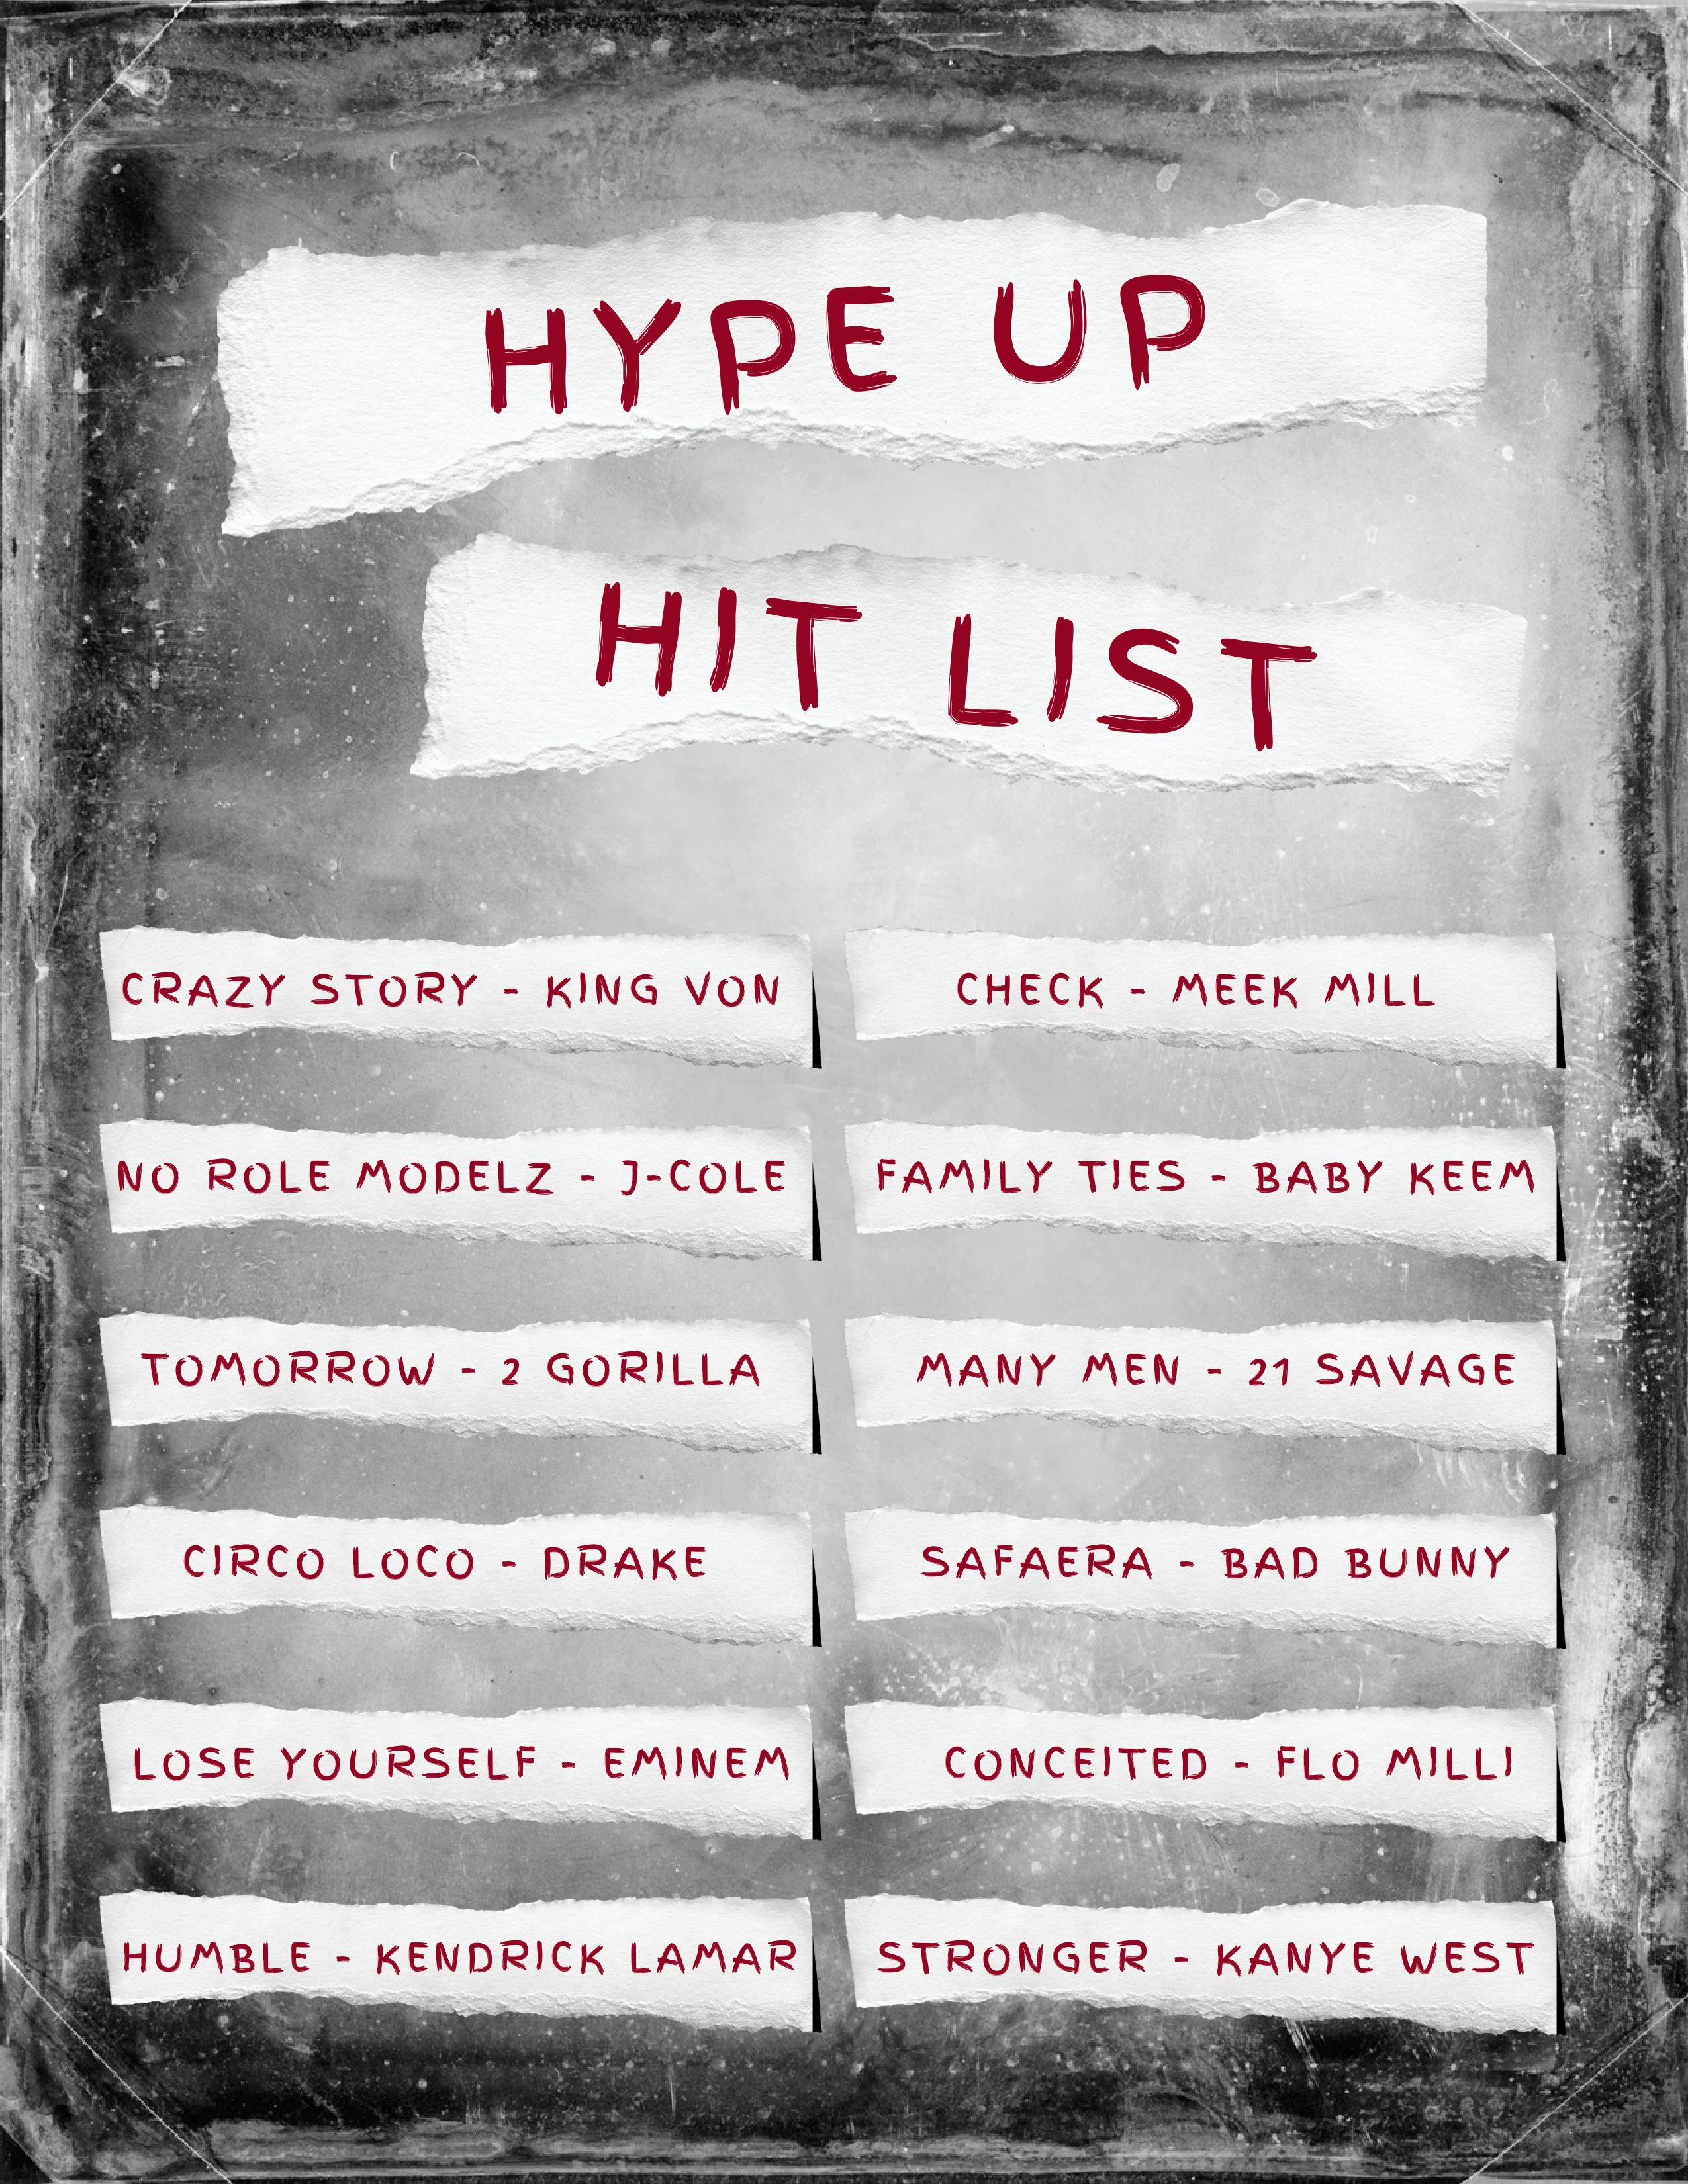 HYPE UP
HIT LIST
CRAZY STORY - KING VON
CHECK - MEEK MILL
NO ROLE MODELZ - J-COLE
FAMILY TIES - BABY KEEM
TOMORROW - 2 GORILLA
MANY MEN - 21 SAVAGE
CIRCO LOCO - DRAKE
SAFAERA - BAD BUNNY
LOSE YOURSELF - EMINEM
CONCEITED - FLO MILLI
HUMBLE - KENDRICK LAMAR
STRONGER - KANYE WEST